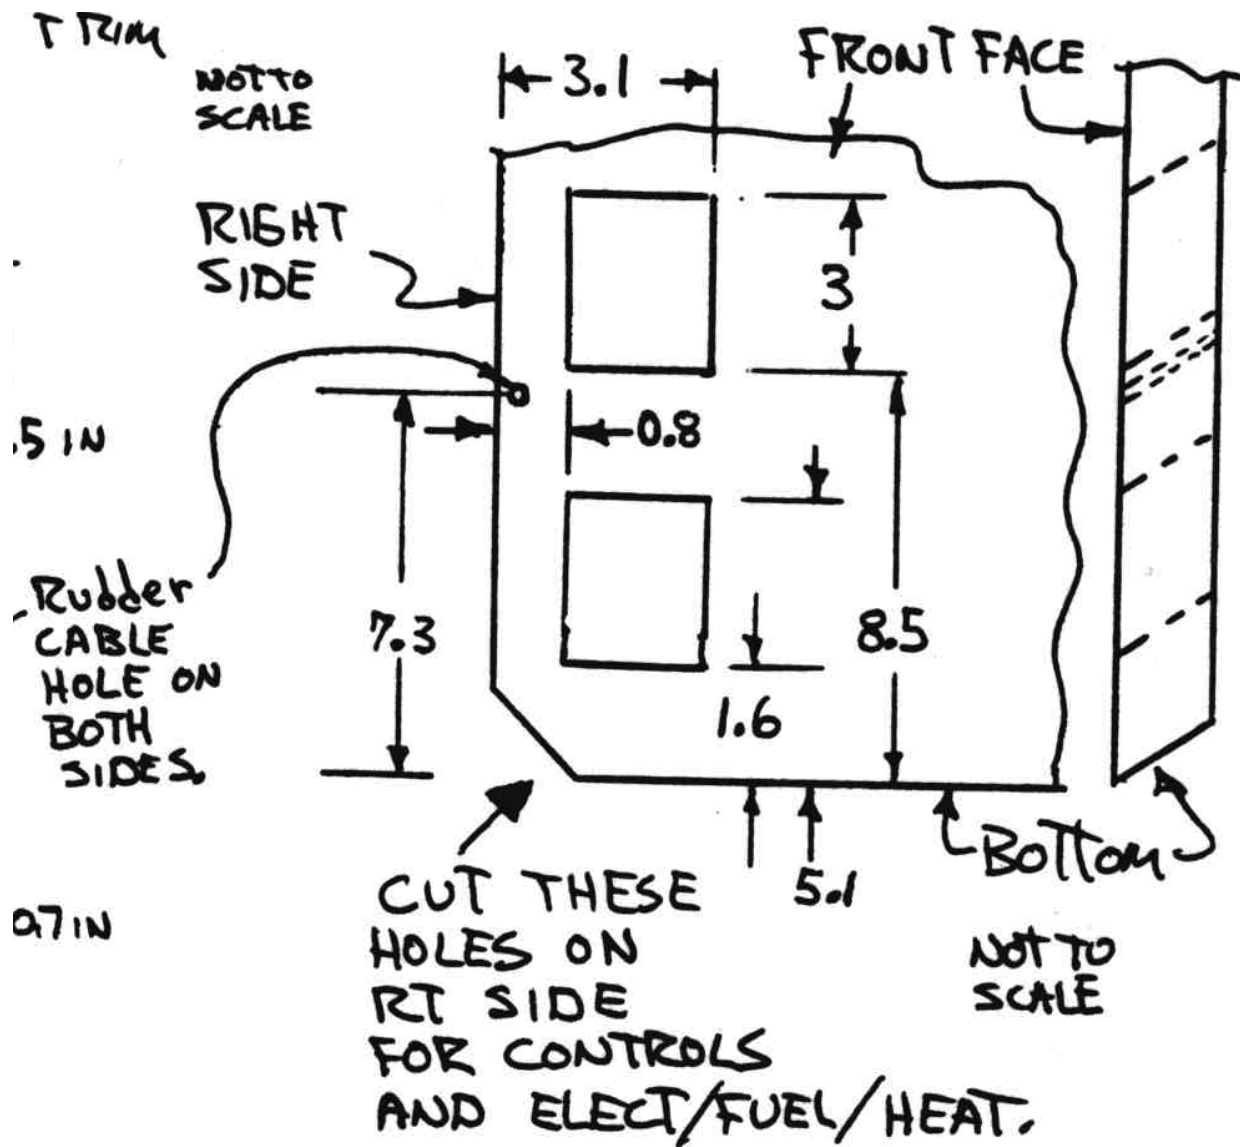 T RIM
NOT TO
SCALE
3.1
FRONT FACE
RIGHT
SIDE
3
.5 IN
0.8
Rudder
CABLE
HOLE ON
BOTH
SIDES.
7.3
8.5
1.6
5.1
BOTTOM
CUT THESE
HOLES ON
RT SIDE
FOR CONTROLS
AND ELECT/FUEL/HEAT.
0.7 IN
NOT TO
SCALE